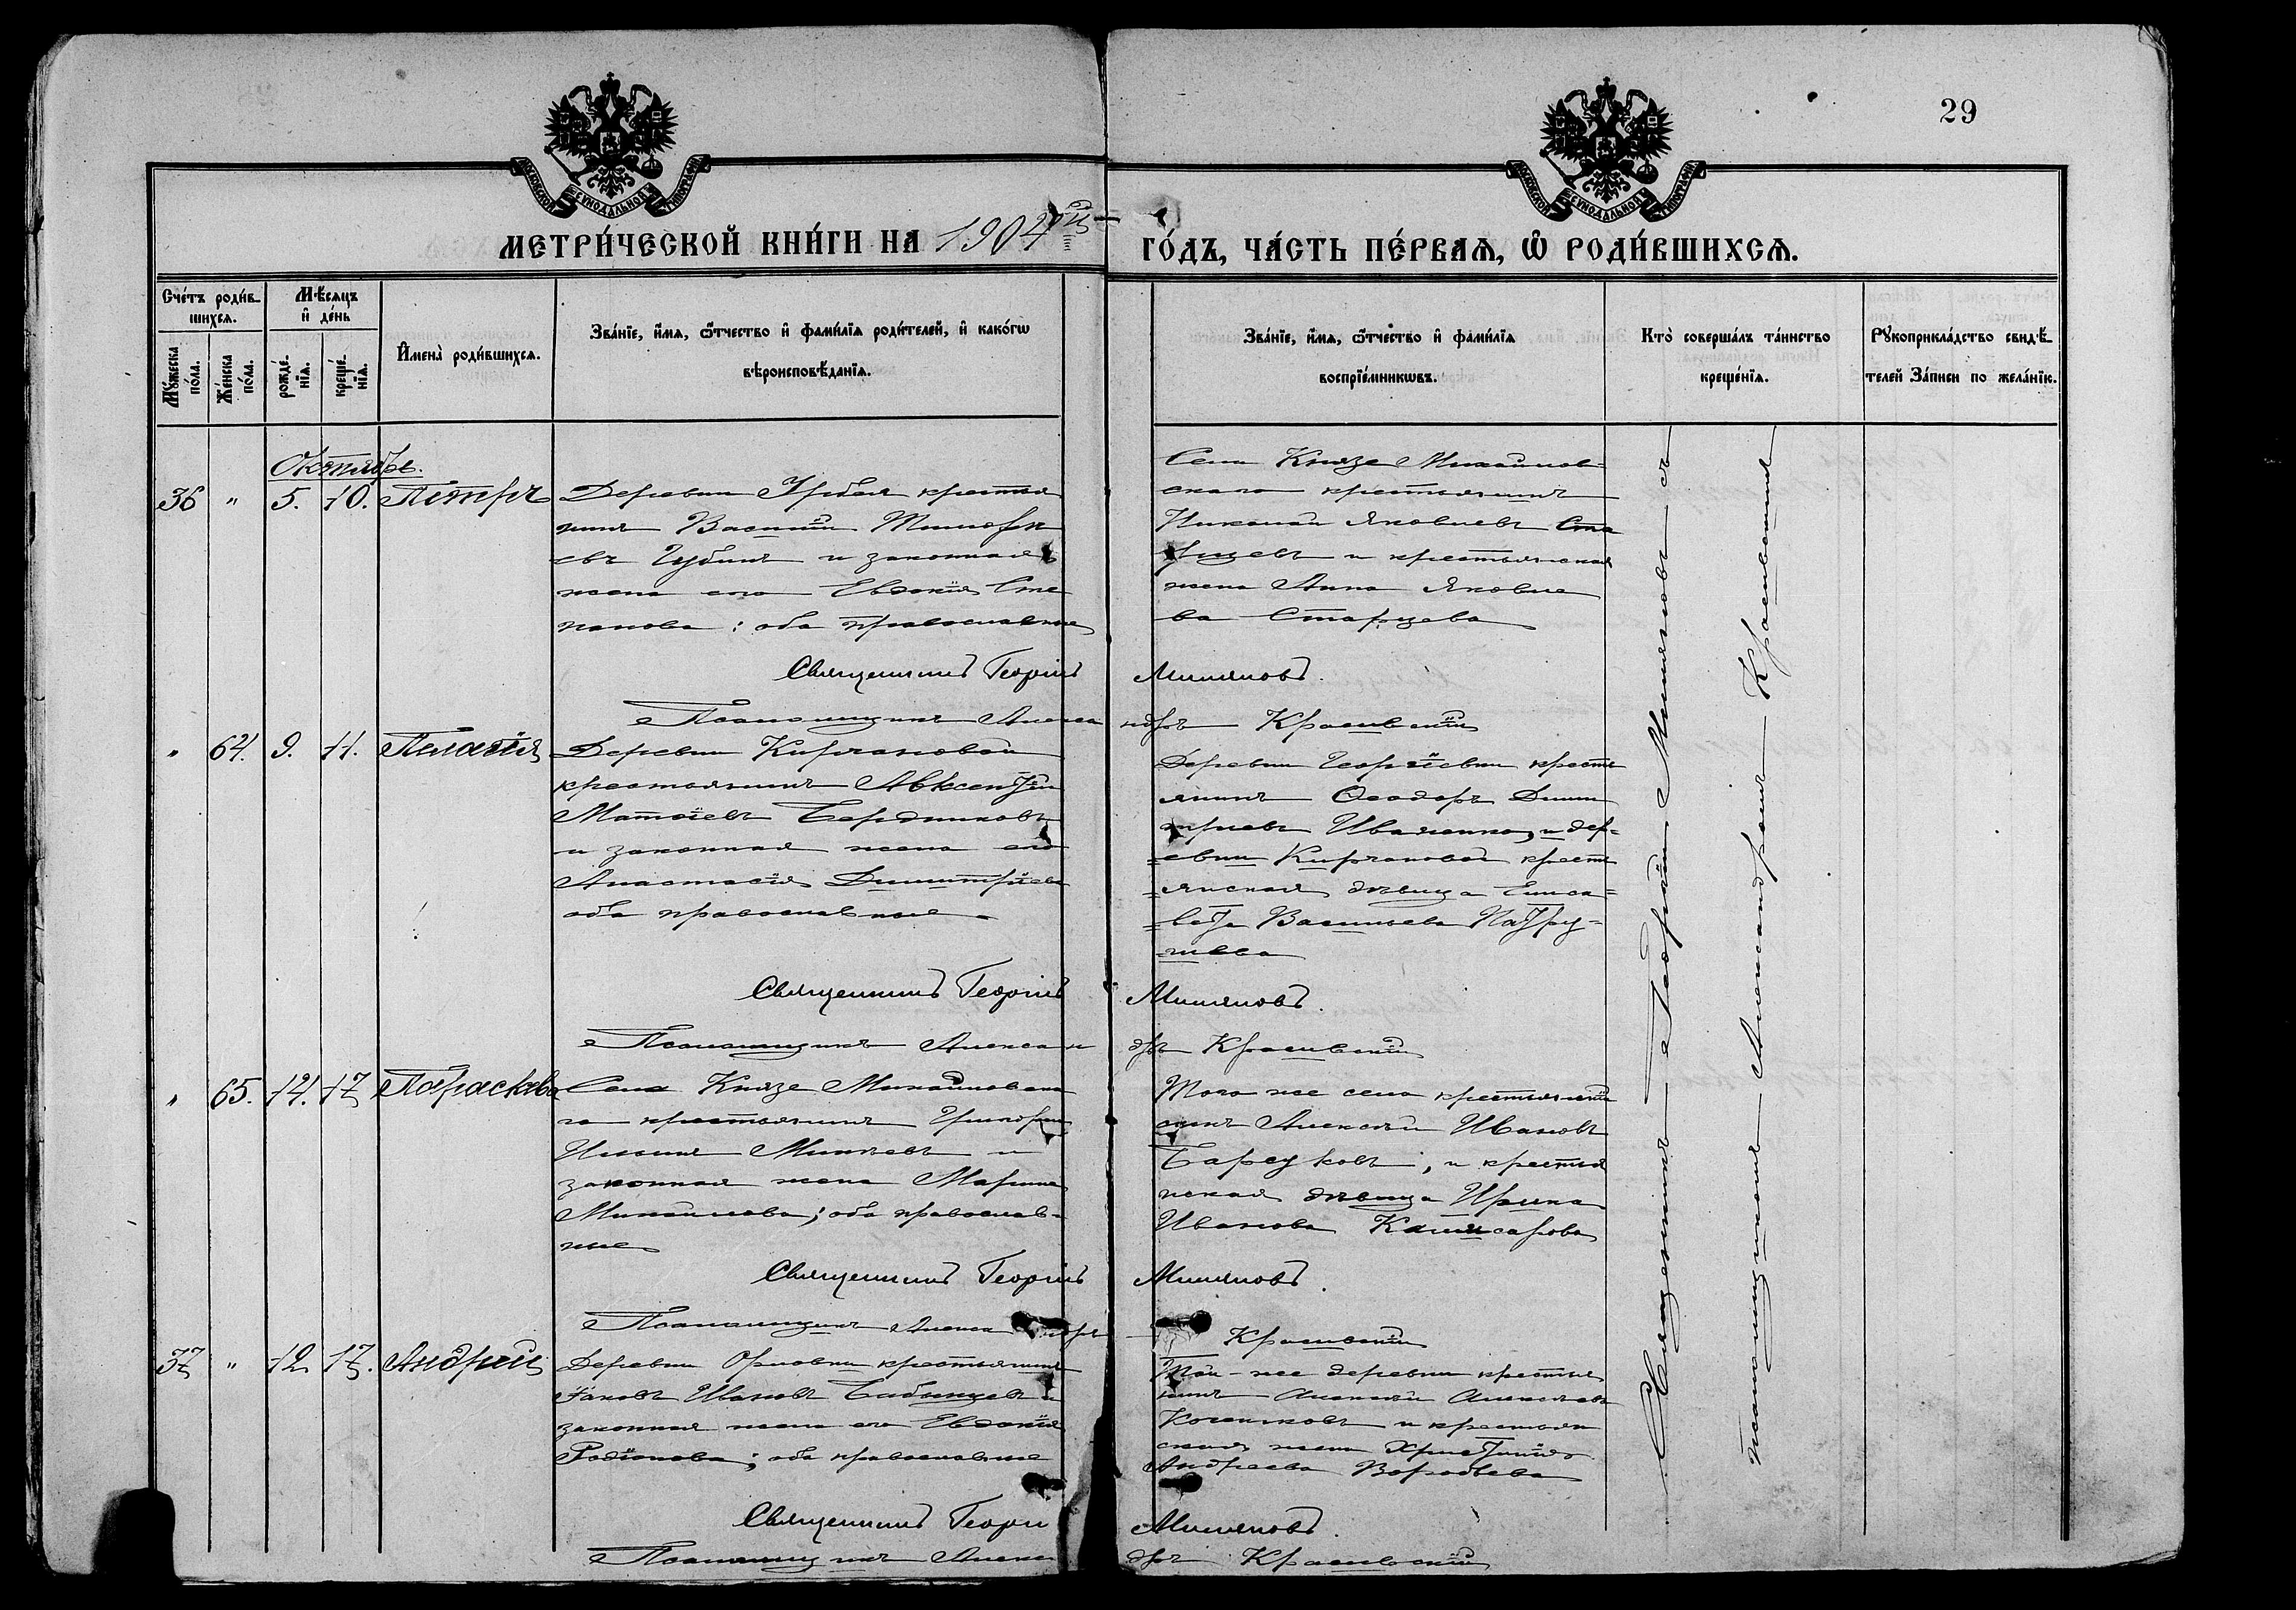 29
МОСКОВСКОЙ СѴНОДАЛЬНОЙ ТИПОГРАФІИ
МОСКОВСКОЙ СѴНОДАЛЬНОЙ ТИПОГРАФІИ
МЕТРИ́ЧЕСКОЙ КНИ́ГИ НА 1904й ГО́ДЪ, ЧА́СТЬ ПЕ́РВАЯ, Ѡ҆ РОДИ́ВШИХСѦ.
Счетъ роди́в-
шихсѧ.
Мꙋжеска по́ла.
Же́нска по́ла.
Мѣ́сѧцъ
и҆ де́нь
рожде́-
нїѧ.
креще́-
нїѧ.
И҆мена̀ роди́вшихсѧ.
Зва́нїе, и҆́мѧ, ѻ҆́тчество и҆ фами́лїѧ роди́телей, и҆ како́гѡ
вѣроисповѣ́данїѧ.
Зва́нїе, и҆́мѧ, ѻ҆́тчество и҆ фами́лїѧ
воспрїе́мникѡвъ.
Кто̀ соверша́лъ та́инство
креще́нїѧ.
Рꙋкоприкла́дство свидѣ́-
телей За́писи по жела́нїю.
Октябрь.
36 " 5. 10. Петръ
Деревни Урбея крестья
нинъ Василій Тимофе
евъ Губинъ и законная
жена его Евдокія Сте
панова: оба православные
Села Князе Михайлов-
скаго крестьянинъ
Николай Яковлевъ Ста
рцевъ и крестьянская
жена Анна Яковле
ва Старцева
Священникъ Георгій Миляновъ.
Псаломщикъ Александръ Красивскій
" 64. 9. 11. Пелагія
Деревни Кирчановой
крестьянинъ Авксентій
Матвіевъ Бердниковъ
и законная жена его
Анастасія Димитріева
оба православные
Деревни Георгіевки кресть
янинъ Ѳеодоръ Дими
тріевъ Иваненко, и дер-
евни Кирчановой кресть
янская дѣвица Елиса-
вета Васильева Патру-
шева
Священникъ Георгій Миляновъ.
Псаломщикъ Александръ Красивскій
" 65. 14. 17 Параскева
Села Князе Михайловска
го крестьянинъ Григорій
Ильинъ Михѣевъ и
законная жена Марина
Михайлова; оба православ-
ные
Того же села крестьянскій
сынъ Алексѣй Ивановъ
Барсуковъ, и крестья
нская дѣвица Ирина
Иванова Комисарова
Священникъ Георгій Миляновъ.
Псаломщикъ Александръ Красивскій
37 " 12 17. Андрей
Деревни Орловки крестьянинъ
Іаковъ Ивановъ Бабынцевъ и
законная жена его Евдокія
Родіонова; оба православные
Той-же деревни крестья
нинъ Алексѣй Алексѣевъ
и крестьян
ская жена Христинія
Андреева Воробьева
Священникъ Георгій Миляновъ.
Псаломщикъ Александръ Красивскій
Священникъ Георгій Миляновъ съ
псаломщикомъ Александромъ Красивскимъ